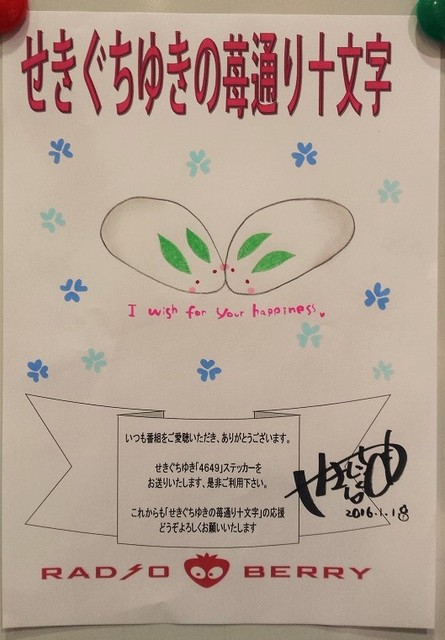 せきぐちゆきの苺通り十文字
I wish for your happiness
いつも番組をご愛聴いただき、ありがとうございます。
せきぐちゆき「4649」ステッカーを
お送りいたします、是非ご利用下さい。
これからも「せきぐちゆきの苺通り十文字」の応援
どうぞよろしくお願いいたします
せきぐちゆき
2016.1.18
RADIO BERRY